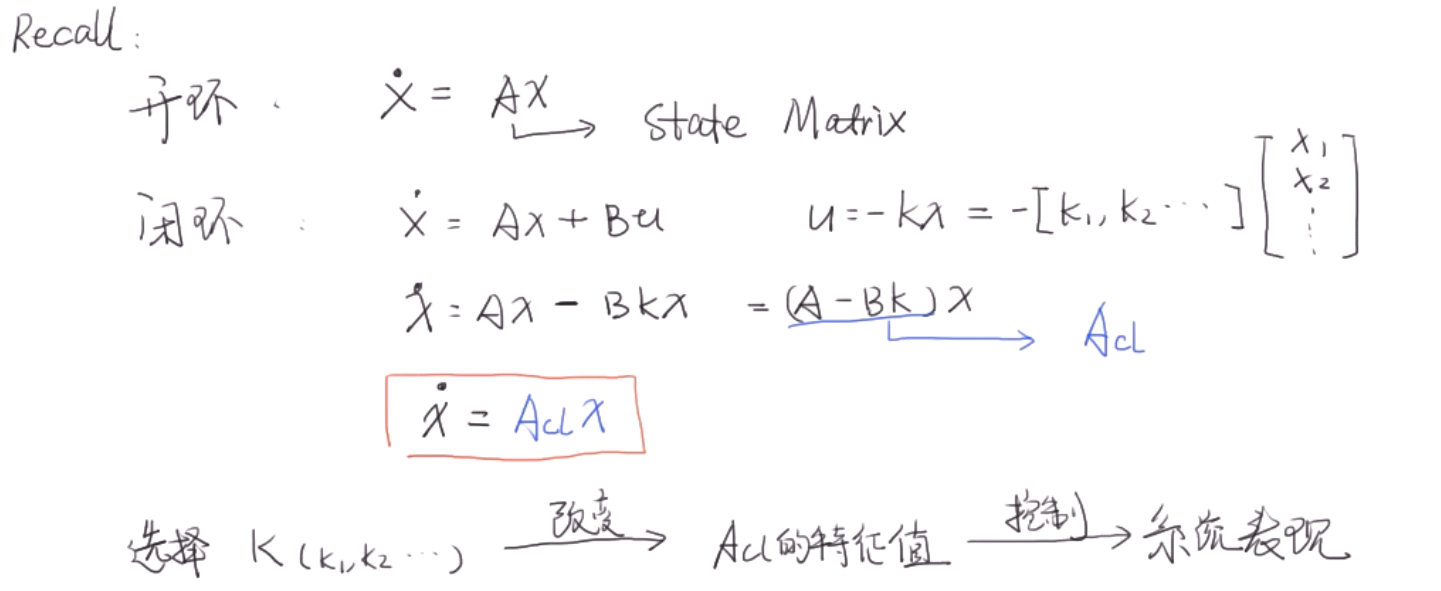 Recall:
开环: ẋ = Ax → State Matrix
闭环: ẋ = Ax + Bu u = -kx = -[k₁, k₂ ⋯] [x₁ x₂ ⋮]
ẋ = Ax - Bkx = (A - Bk)x → Acl
ẋ = Acl x
选择 K(k₁,k₂ ⋯) 改变→ Acl的特征值 控制→ 系统表现